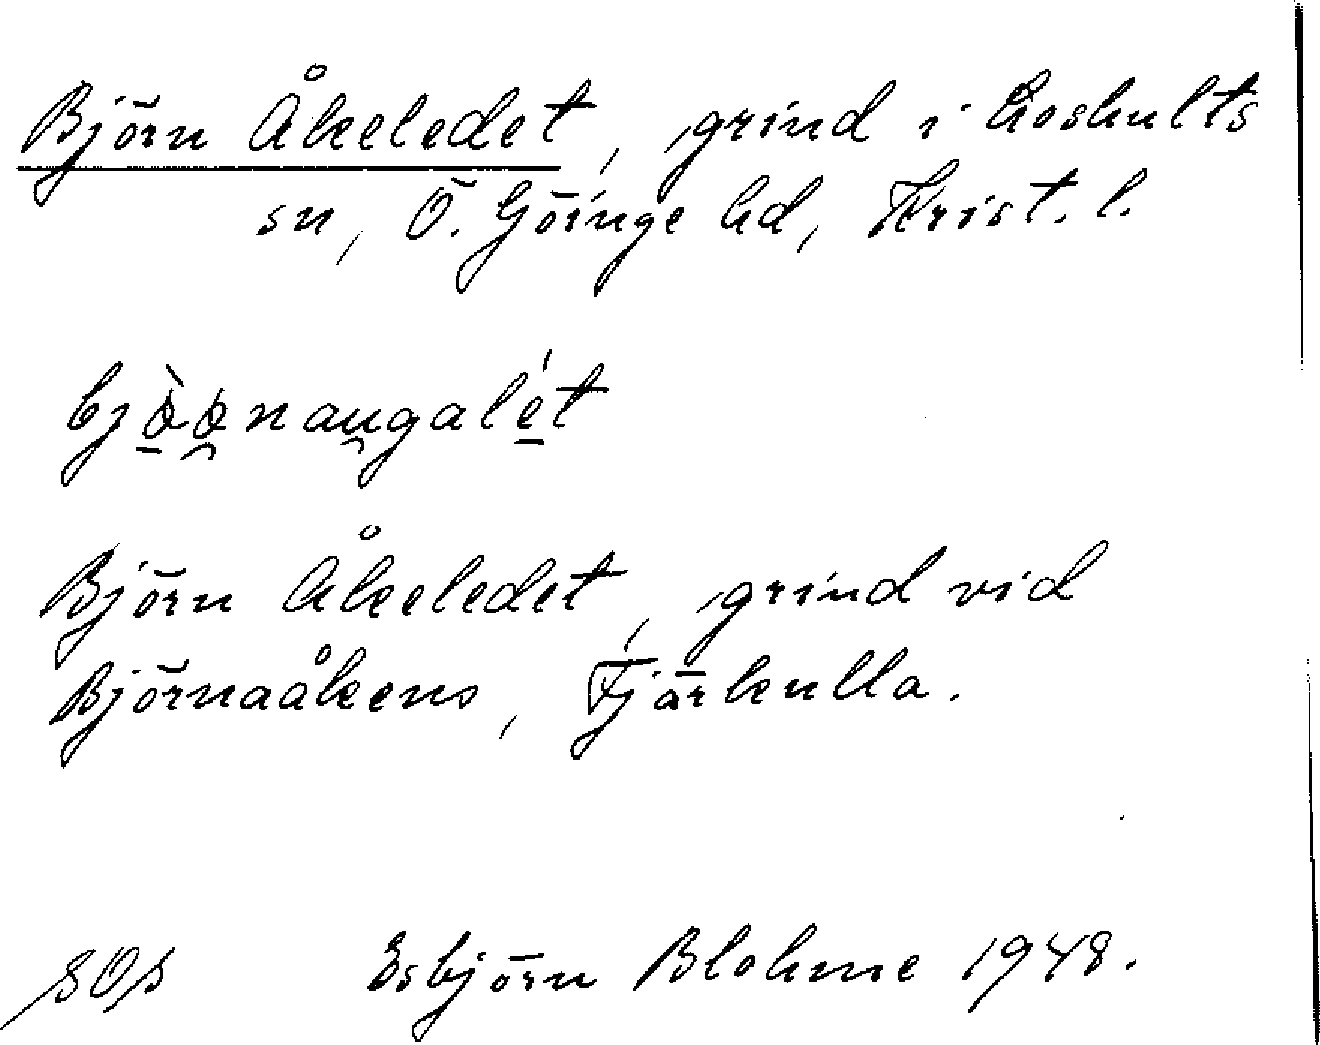 Björn Åkeledet, grind i Loshults
sn, Ö. Göinge hd, Krist. l.
Björn Åkeledet, grind vid
Björnaåkens, Tjärkulla.
SOS Esbjörn Blohme 1948.